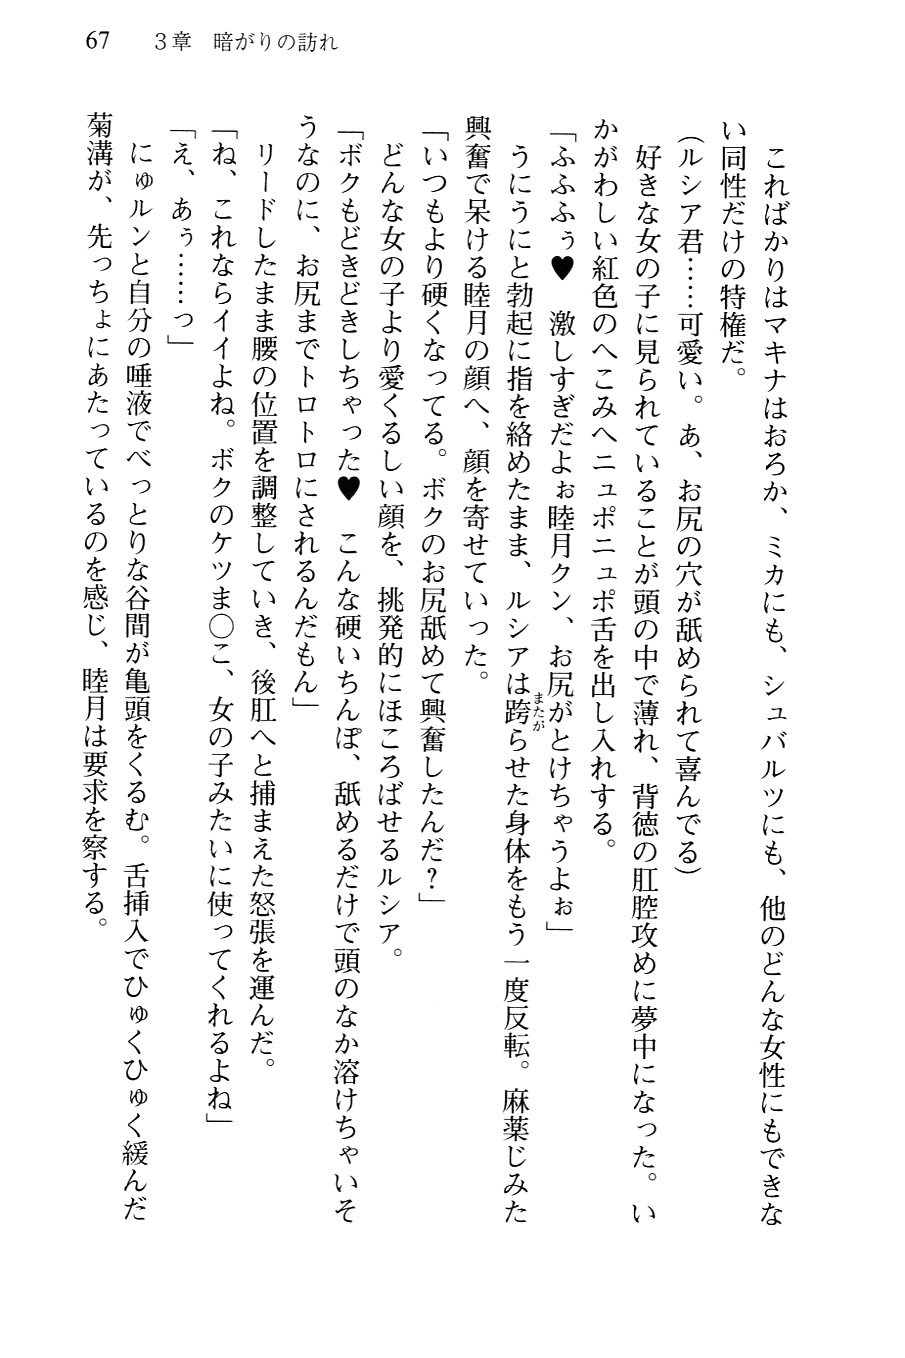 67　３章　暗がりの訪れ
　こればかりはマキナはおろか、ミカにも、シュバルツにも、他のどんな女性にもできな
い同性だけの特権だ。
（ルシア君……可愛い。あ、お尻の穴が舐められて喜んでる）
　好きな女の子に見られていることが頭の中で薄れ、背徳の肛腔攻めに夢中になった。い
かがわしい紅色のへこみへニュポニュポ舌を出し入れする。
「ふふふぅ♥　激しすぎだよぉ睦月クン、お尻がとけちゃうよぉ」
　うにうにと勃起に指を絡めたまま、ルシアは跨らせた身体をもう一度反転。麻薬じみた
興奮で呆ける睦月の顔へ、顔を寄せていった。
「いつもより硬くなってる。ボクのお尻舐めて興奮したんだ？」
　どんな女の子より愛くるしい顔を、挑発的にほころばせるルシア。
「ボクもどきどきしちゃった♥　こんな硬いちんぽ、舐めるだけで頭のなか溶けちゃいそ
うなのに、お尻までトロトロにされるんだもん」
　リードしたまま腰の位置を調整していき、後肛へと捕まえた怒張を運んだ。
「ね、これならイイよね。ボクのケツま〇こ、女の子みたいに使ってくれるよね」
「え、あぅ……っ」
　にゅルンと自分の唾液でべっとりな谷間が亀頭をくるむ。舌挿入でひゅくひゅく緩んだ
菊溝が、先っちょにあたっているのを感じ、睦月は要求を察する。